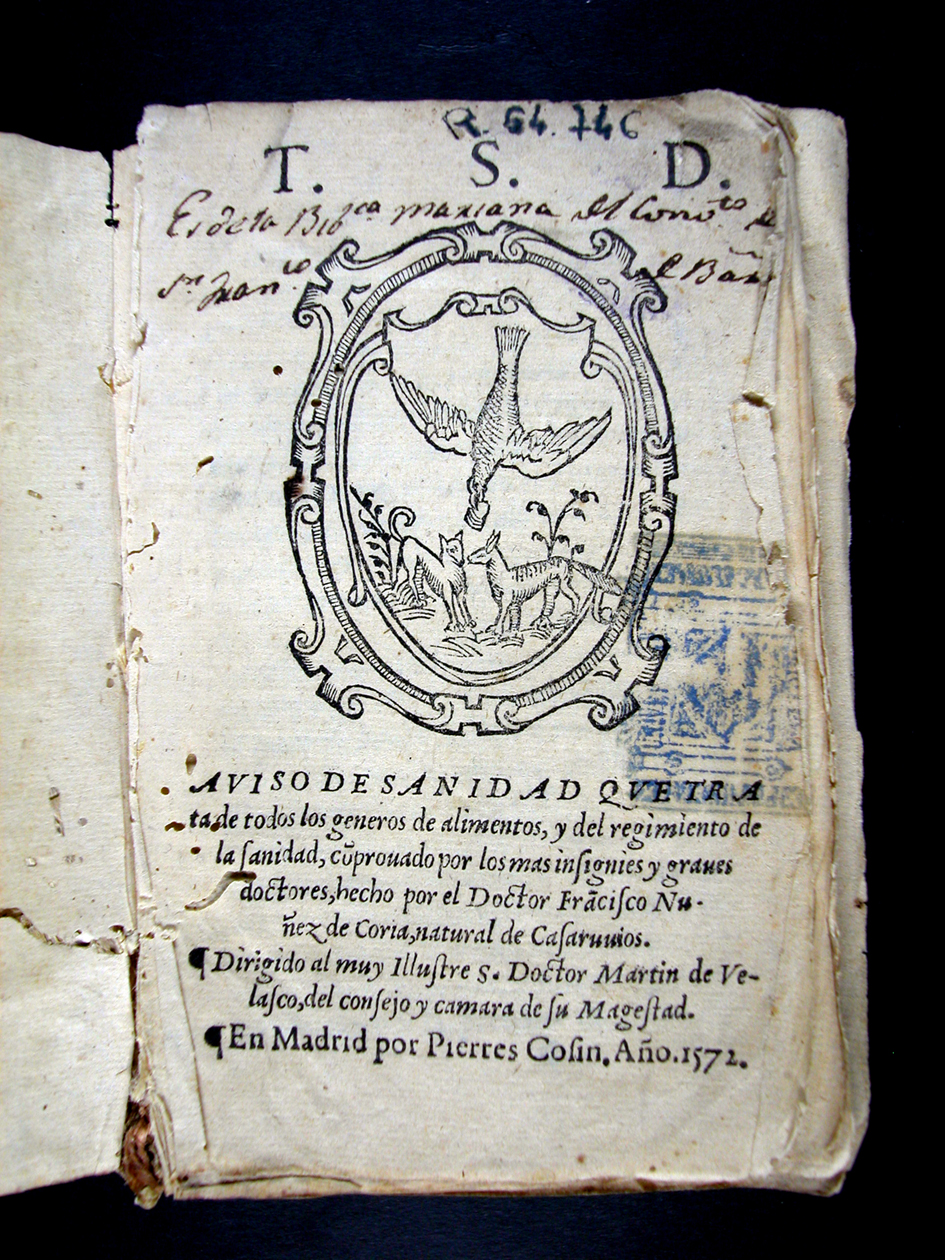 R. 64.746
T. S. D.
Es de la Bibca mariana del Convto
sn Franco
AVISO DE SANIDAD QVE TRA
ta de todos los generos de alimentos, y del regimiento de
la sanidad, cũprouado por los mas insignies y graues
doctores, hecho por el Doctor Frãcisco Nu-
ñez de Coria, natural de Casaruuios.
¶ Dirigido al muy Illustre S. Doctor Martin de Ve-
lasco, del consejo y camara de su Magestad.
¶ En Madrid por Pierres Cosin. Año. 1572.